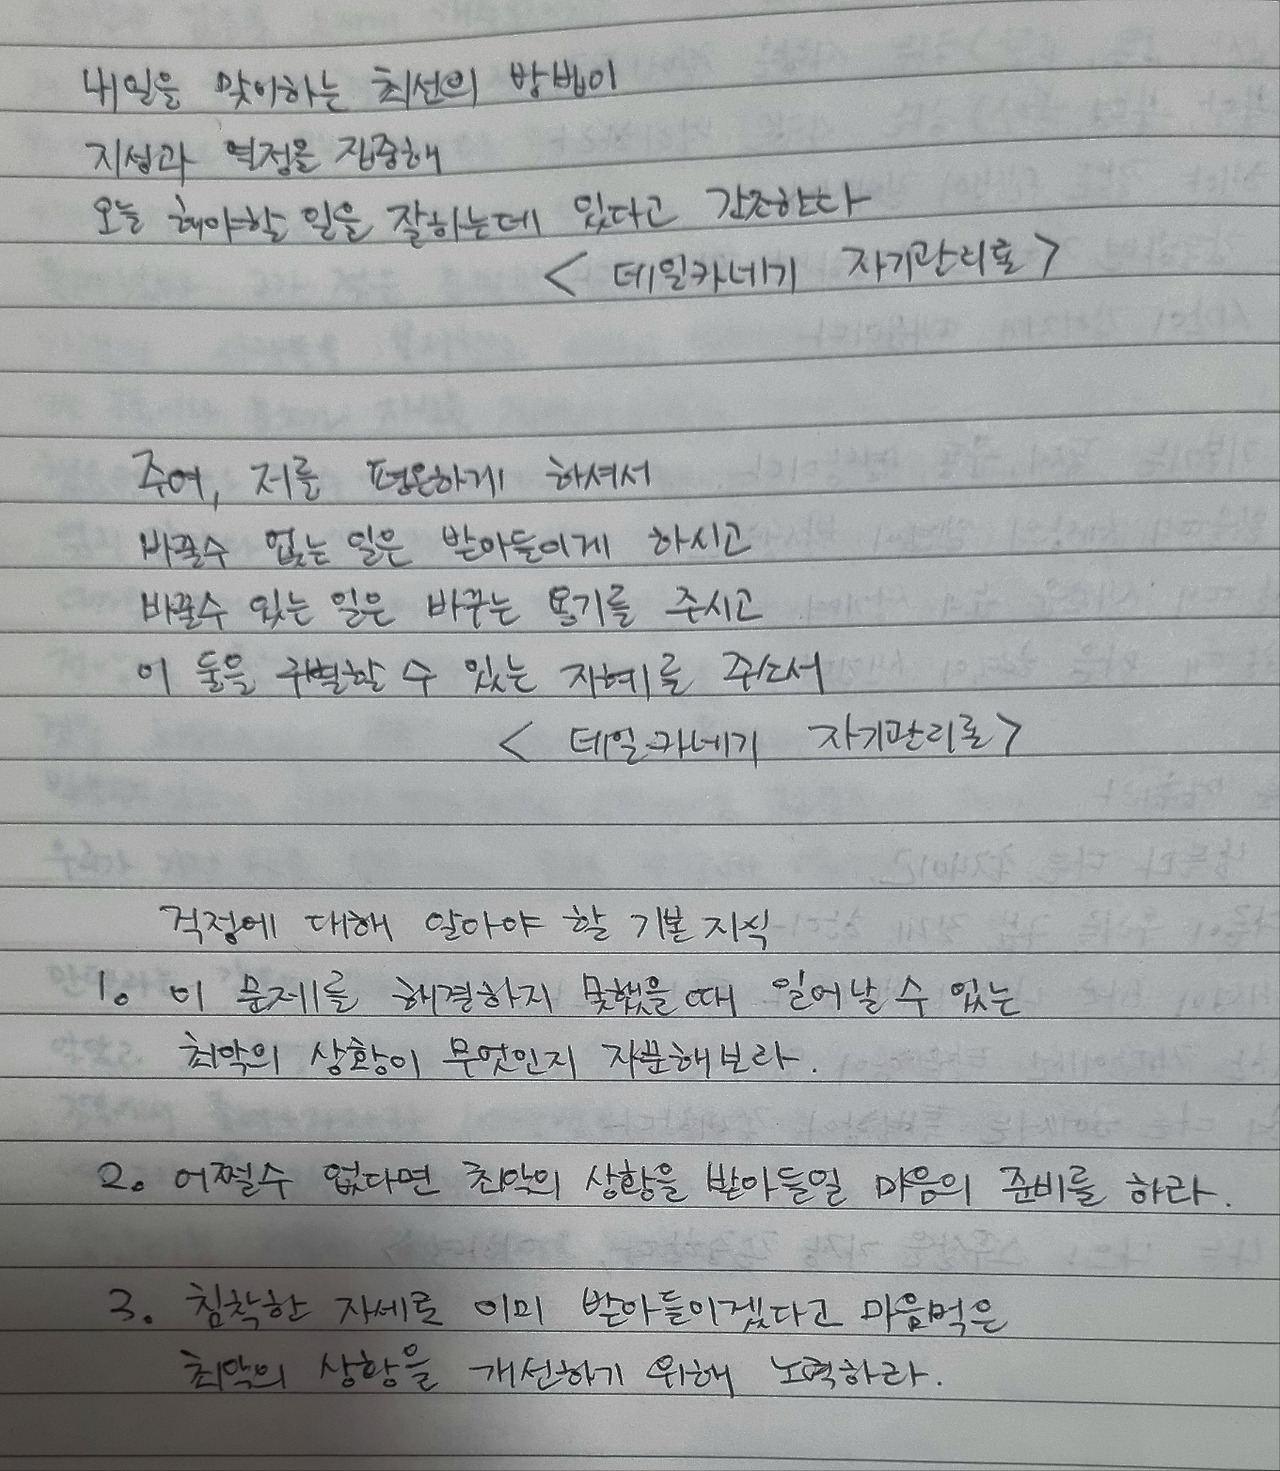 내일을 맞이하는 최선의 방법이
지성과 열정을 집중해
오늘 해야할 일을 잘하는데 있다고 강조한다
< 데일카네기 자기관리론 >
주여, 저를 평온하게 하셔서
바꿀수 없는 일은 받아들이게 하시고
바꿀수 있는 일은 바꾸는 용기를 주시고
이 둘을 구별할 수 있는 지혜를 주소서
< 데일카네기 자기관리론 >
걱정에 대해 알아야 할 기본 지식
1. 이 문제를 해결하지 못했을 때 일어날 수 있는
최악의 상황이 무엇인지 자문해보라.
2. 어쩔수 없다면 최악의 상황을 받아들일 마음의 준비를 하라.
3. 침착한 자세로 이미 받아들이겠다고 마음먹은
최악의 상황을 개선하기 위해 노력하라.